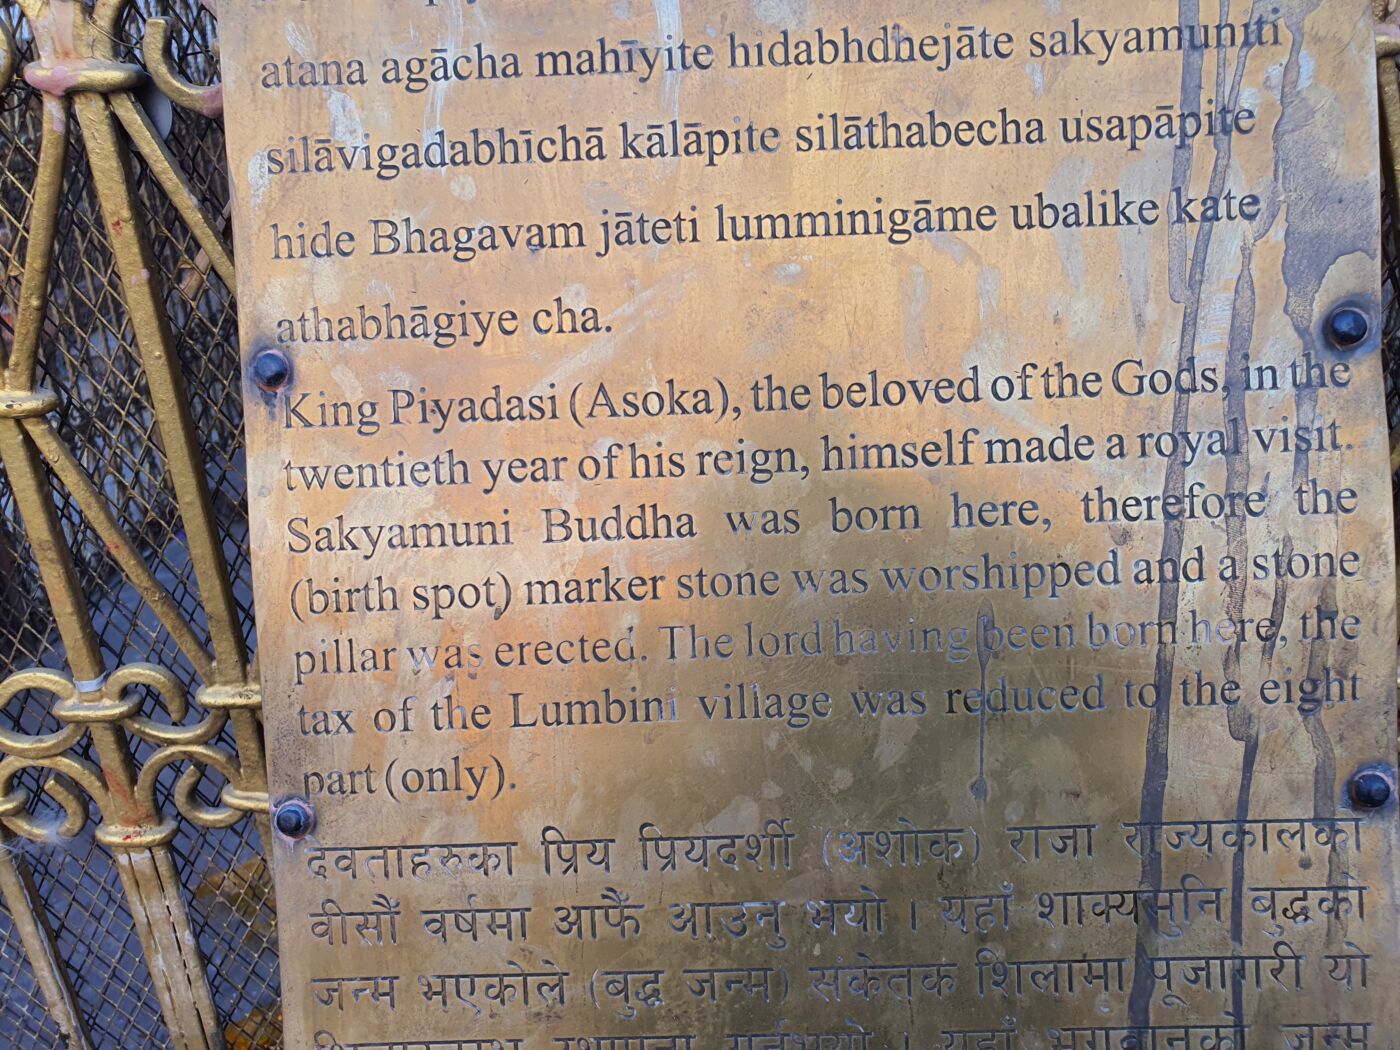 atana agācha mahīyite hidabhdhejāte sakyamunīti
silāvigadabhīchā kālāpite silāthabecha usapāpite
hide Bhagavam jāteti lumminigāme ubalike kate
athabhāgiye cha.
King Piyadasi (Asoka), the beloved of the Gods, in the
twentieth year of his reign, himself made a royal visit.
Sakyamuni Buddha was born here, therefore the
(birth spot) marker stone was worshipped and a stone
pillar was erected. The lord having been born here, the
tax of the Lumbini village was reduced to the eight
part (only).
देवताहरुका प्रिय प्रियदर्शी (अशोक) राजा राज्यकालको
वीसौं वर्षमा आफै आउनु भयो । यहाँ शाक्यमुनि बुद्धको
जन्म भएकोले (बुद्ध जन्म) संकेतक शिलामा पूजागरी यो
यहाँ भगवानको जन्म